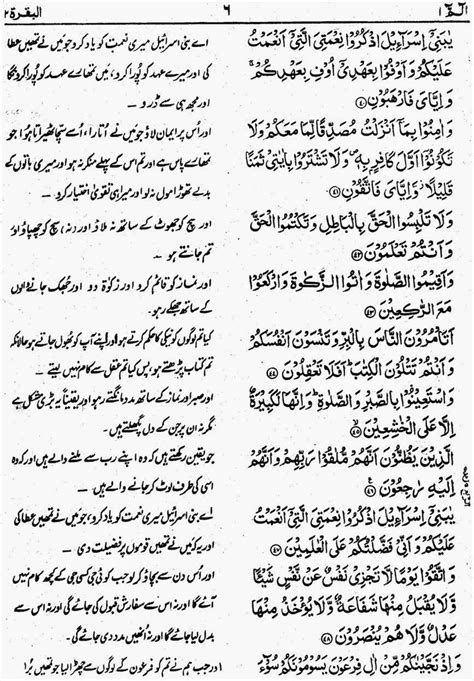 الٓمّٓ ١ ٦ البقرة ٢
يٰبَنِيْٓ اِسْرَآءِيْلَ اذْكُرُوْا نِعْمَتِيَ الَّتِيْٓ اَنْعَمْتُ
عَلَيْكُمْ وَاَوْفُوْا بِعَهْدِيْٓ اُوْفِ بِعَهْدِكُمْ ۚ
وَاِيَّايَ فَارْهَبُوْنِ ۝
وَاٰمِنُوْا بِمَآ اَنْزَلْتُ مُصَدِّقًا لِّمَا مَعَكُمْ وَلَا
تَكُوْنُوْٓا اَوَّلَ كَافِرٍۭ بِهٖ ۠ وَلَا تَشْتَرُوْا بِاٰيٰتِيْ ثَمَنًا
قَلِيْلًا ۡ وَّاِيَّايَ فَاتَّقُوْنِ ۝
وَلَا تَلْبِسُوا الْحَقَّ بِالْبَاطِلِ وَتَكْتُمُوا الْحَقَّ
وَاَنْتُمْ تَعْلَمُوْنَ ۝
وَاَقِيْمُوا الصَّلٰوةَ وَاٰتُوا الزَّكٰوةَ وَارْكَعُوْا
مَعَ الرّٰكِعِيْنَ ۝
اَتَاْمُرُوْنَ النَّاسَ بِالْبِرِّ وَتَنْسَوْنَ اَنْفُسَكُمْ
وَاَنْتُمْ تَتْلُوْنَ الْكِتٰبَ ؕ اَفَلَا تَعْقِلُوْنَ ۝
وَاسْتَعِيْنُوْا بِالصَّبْرِ وَالصَّلٰوةِ ؕ وَاِنَّهَا لَكَبِيْرَةٌ
اِلَّا عَلَى الْخٰشِعِيْنَ ۝
الَّذِيْنَ يَظُنُّوْنَ اَنَّهُمْ مُّلٰقُوْا رَبِّهِمْ وَاَنَّهُمْ
اِلَيْهِ رٰجِعُوْنَ ۝
يٰبَنِيْٓ اِسْرَآءِيْلَ اذْكُرُوْا نِعْمَتِيَ الَّتِيْٓ اَنْعَمْتُ
عَلَيْكُمْ وَاَنِّيْ فَضَّلْتُكُمْ عَلَى الْعٰلَمِيْنَ ۝
وَاتَّقُوْا يَوْمًا لَّا تَجْزِيْ نَفْسٌ عَنْ نَّفْسٍ شَيْـًٔا
وَّلَا يُقْبَلُ مِنْهَا شَفَاعَةٌ وَّلَا يُؤْخَذُ مِنْهَا
عَدْلٌ وَّلَا هُمْ يُنْصَرُوْنَ ۝
وَاِذْ نَجَّيْنٰكُمْ مِّنْ اٰلِ فِرْعَوْنَ يَسُوْمُوْنَكُمْ سُوْٓءَ
اے بنی اسرائیل میری نعمت کو یاد کرو جو میں نے تمھیں عطا
کی اور میرے عہد کو پورا کرو ، میں تمھارے عہد کو پورا کروں گا
اور مجھ ہی سے ڈرو ۔
اور اُس پر ایمان لاؤ جو میں نے اُتارا ، اُسے سچا ٹھہراتا ہوا جو
تمھارے پاس ہے اور تم اس کے پہلے منکر نہ ہو اور میری باتوں کے
بدلے تھوڑا مول نہ لو اور میرا ہی تقویٰ اختیار کرو ۔
اور سچ کو جھوٹ کے ساتھ نہ ملاؤ اور (نہ) سچ کو چھپاؤ اور
تم جانتے ہو ۔
اور نماز کو قائم کرو اور زکوٰة دو اور جھک جانے والوں
کے ساتھ جھکے رہو ۔
کیا تم لوگوں کو نیکی کا حکم کرتے ہو اور اپنے آپ کو بھول جاتے ہو حالانکہ
تم کتاب پڑھتے ہو ، پس کیا تم عقل سے کام نہیں لیتے ۔
اور صبر اور نماز کے ساتھ مدد مانگتے رہو اور یقیناً یہ بڑی مشکل ہے
مگر نہ ان پر جن کے دل پگھلے ہوئے ہیں ۔
جو یقین رکھتے ہیں کہ وہ اپنے رب سے ملنے والے ہیں اور کہ وہ
اسی کی طرف لوٹ کر جانے والے ہیں ۔
اے بنی اسرائیل میری نعمت کو یاد کرو ، جو میں نے تمھیں عطا کی
اور یہ کہ میں نے تمھیں قوموں پر فضیلت دی ۔
اور اُس دن سے بچاؤ کر لو جب کوئی جی کسی جی کے کچھ کام نہیں
آئے گا اور نہ اس سے سفارش قبول کی جائے گی اور نہ اس سے
بدلہ لیا جائے گا اور نہ انھیں مدد دی جائے گی ۔
اور جب ہم نے تم کو فرعون کے لوگوں سے چھڑا لیا جو تمھیں بُرا